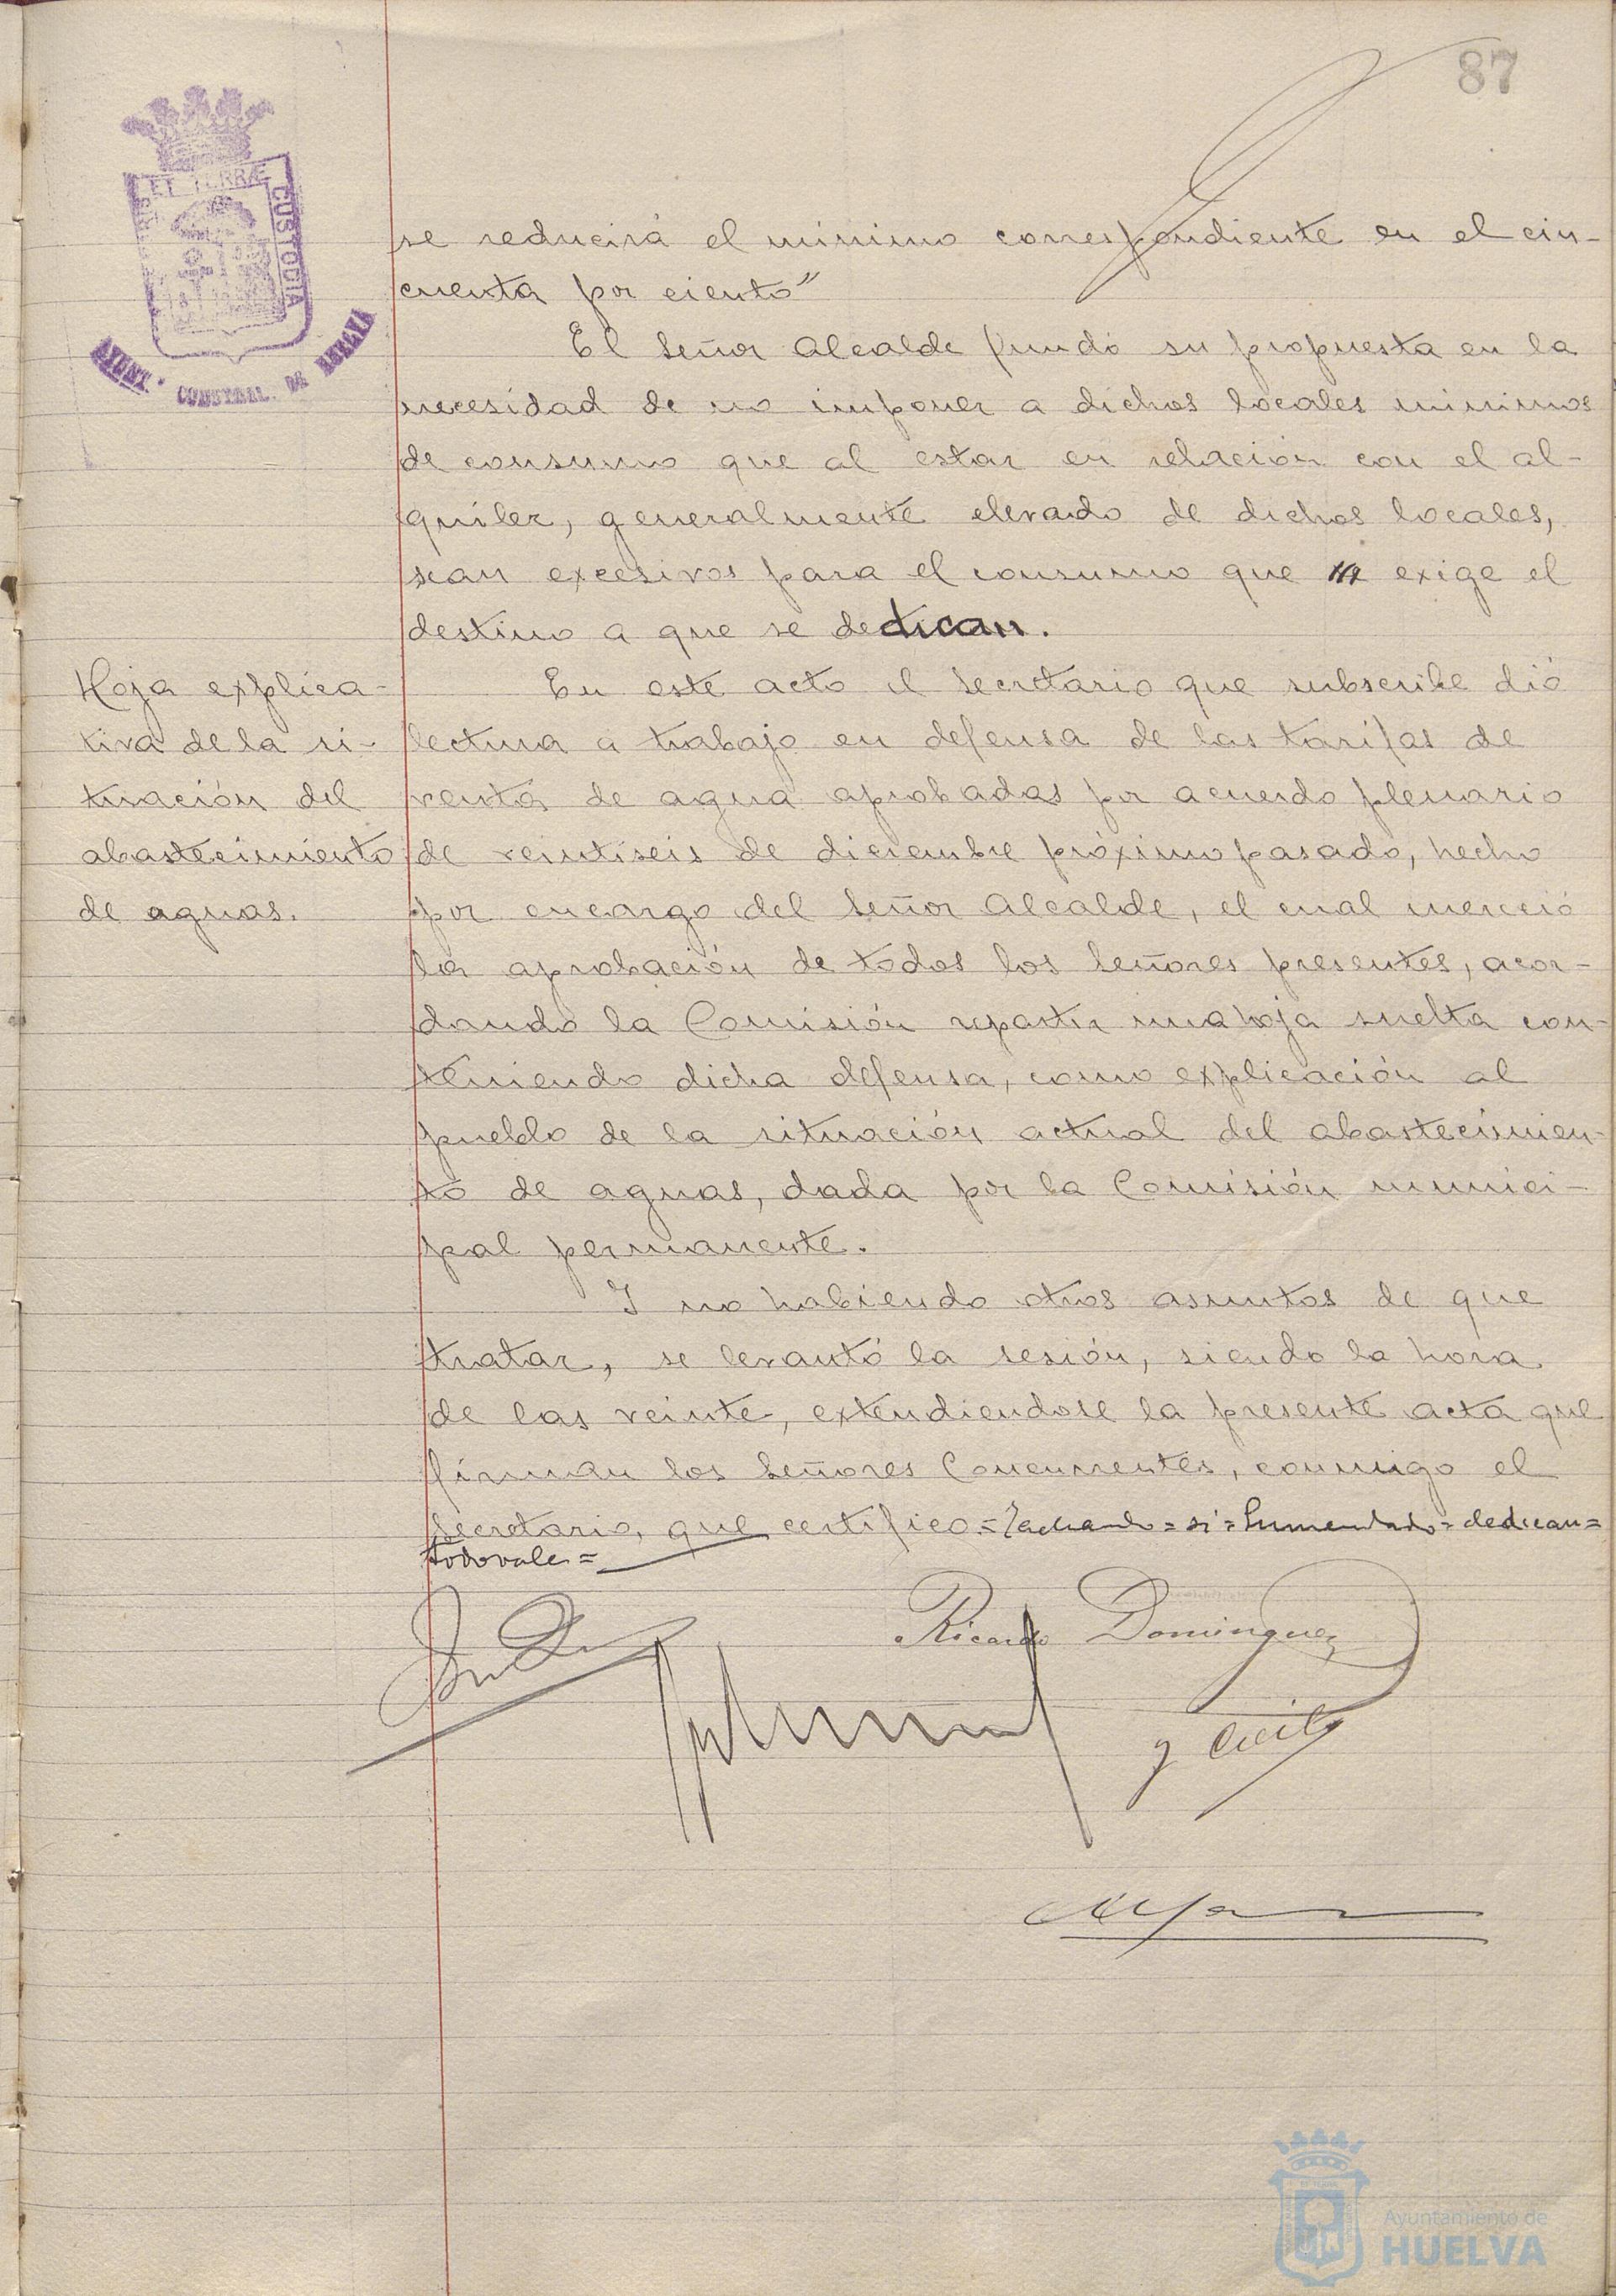 87
ET TERRÆ
CUSTODIA
AYUNT. CONSTNAL. DE HUELVA
se reducirá el mínimo correspondiente en el cin-
cuenta por ciento"
El Señor Alcalde fundó su propuesta en la
necesidad de no imponer a dichos locales mínimos
de consumo que al estar en relación con el al-
quiler, generalmente elevado de dichos locales,
sean excesivos para el consumo que exige el
destino a que se dedican.
Hoja explica-
tiva de la si-
tuación del
abastecimiento
de aguas.
En este acto el Secretario que subscribe dió
lectura a trabajo en defensa de las tarifas de
venta de agua aprobadas por acuerdo plenario
de veintiseis de diciembre próximo pasado, hecho
por encargo del Señor Alcalde, el cual mereció
la aprobación de todos los Señores presentes, acor-
dando la Comisión repartir una hoja suelta con-
teniendo dicha defensa, como explicación al
pueblo de la situación actual del abastecimien-
to de aguas, dada por la Comisión munici-
pal permanente.
Y no habiendo otros asuntos de que
tratar, se levantó la sesión, siendo la hora
de las veinte, extendiendose la presente acta que
firman los Señores Concurrentes, conmigo el
Secretario, que certifico = Tachado = si = Enmendado = dedican =
todo vale =
Ricardo Dominguez
y
Ayuntamiento de
HUELVA